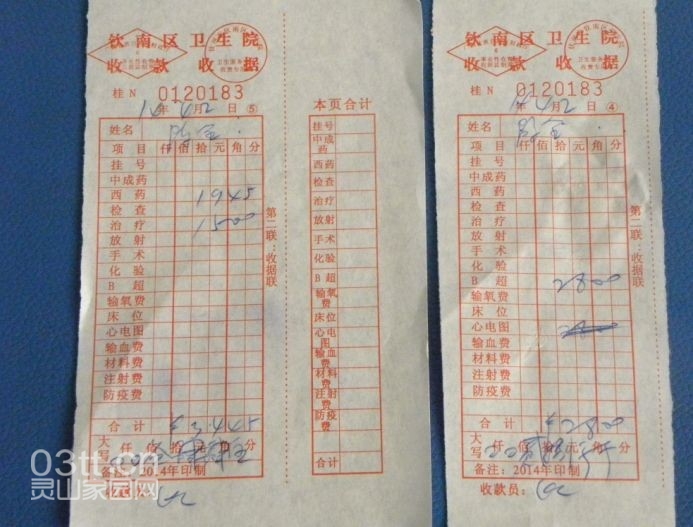 钦南区卫生院
收款收据
桂 N 0120183
14年4月2日⑤
姓名
项目 仟 佰 拾 元 角 分
挂号
中成药
西药 1945
检查
治疗 1500
放射
手术
化验
B超
输氧费
床位
心电图
输血费
材料费
注射费
防疫费
合计
大写 仟 佰 拾 元 角 分
备注：2014年印制
收款员：
第二联：收据联
本页合计
挂号
中成药
西药
检查
治疗
放射
手术
化验
B超
输氧费
床位
心电图
输血费
材料费
注射费
防疫费
合计
钦南区卫生院
收款收据
桂 N 0120183
14年4月2日④
姓名
项目 仟 佰 拾 元 角 分
挂号
中成药
西药
检查
治疗
放射
手术
化验
B超 2800
输氧费
床位
心电图
输血费
材料费
注射费
防疫费
合计 ¥2800
大写 仟 佰 拾 元 角 分
备注：2014年印制
收款员：
第二联：收据联
03tt.cn
灵山家园网